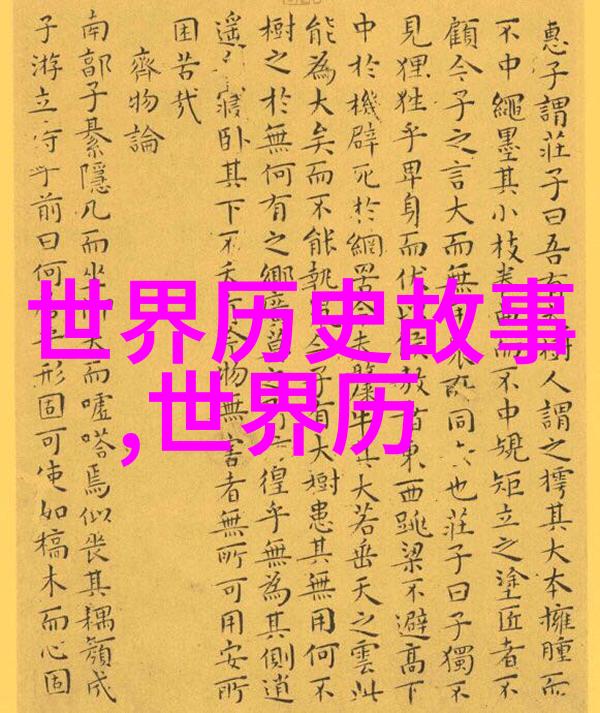 惠子謂莊子曰吾有樹人謂之樗其大本擁腫而
不中繩墨其小枝卷而不中規矩立之塗匠者不
顧今子之言大而無同也莊子曰子獨不
見狸狌乎卑身而伏敖者東西跳梁不避高下
中於機辟死於網罟今牛其大若垂天之雲此
能為大矣而不能執今子有大樹患其無用何不
樹之於無何有之鄉廣莫之徨乎無為其側逍
遙寢卧其下不夭物無害者無所可用安所
困苦哉
齊物論
南郭子綦隱几而坐天而噓嗒焉似喪其耦顏成
子游立侍乎前曰何乎形固可使如槁木而心固
世界历史故事
,世界历